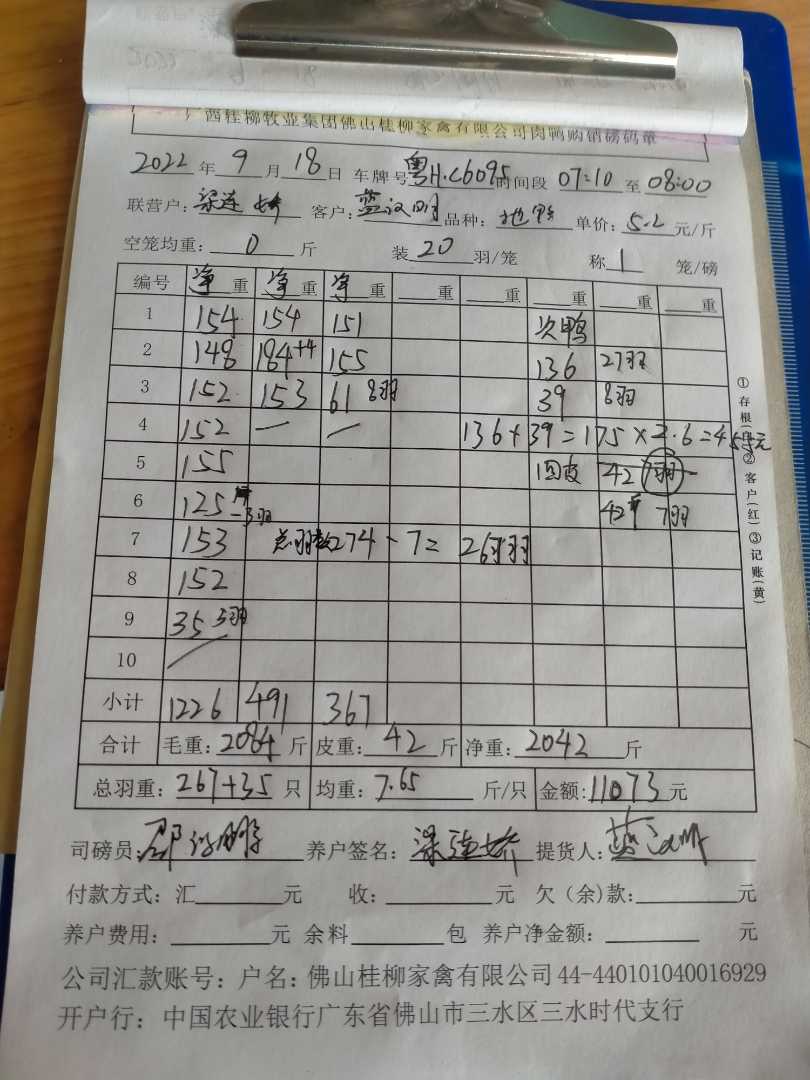 广西桂柳牧业集团佛山桂柳家禽有限公司肉鸭购销磅码单
2022 年 9 月 18 日 车牌号 粤H·C6095 时间段 07:10 至 08:00
联营户: 梁连娇 客户: 蓝汉明 品种: 地鸭 单价: 5.2 元/斤
空笼均重: 0 斤 装 20 羽/笼 称 1 笼/磅
编号 净重 净重 净重 重 重 重 重 重
1 154 154 151 次鸭
2 148 184+4 155 136 27羽
3 152 153 61 8羽 39 8羽
4 152 — — 136+39=175×2.6=455元
5 155 回皮 42 7羽
6 125 -3羽 42斤 7羽
7 153 总羽数274-7=267羽
8 152
9 35 5羽
10
小计 1226 491 367
合计 毛重: 2084 斤 皮重: 42 斤 净重: 2042 斤
总羽重: 267+35 只 均重: 7.65 斤/只 金额: 11073 元
司磅员: 养户签名: 梁连娇 提货人:
付款方式: 汇 元 收: 元 欠(余)款: 元
养户费用: 元 余料 包 养户净金额: 元
公司汇款账号: 户名: 佛山桂柳家禽有限公司 44-440101040016929
开户行: 中国农业银行广东省佛山市三水区三水时代支行
①存根(白)②客户(红)③记账(黄)